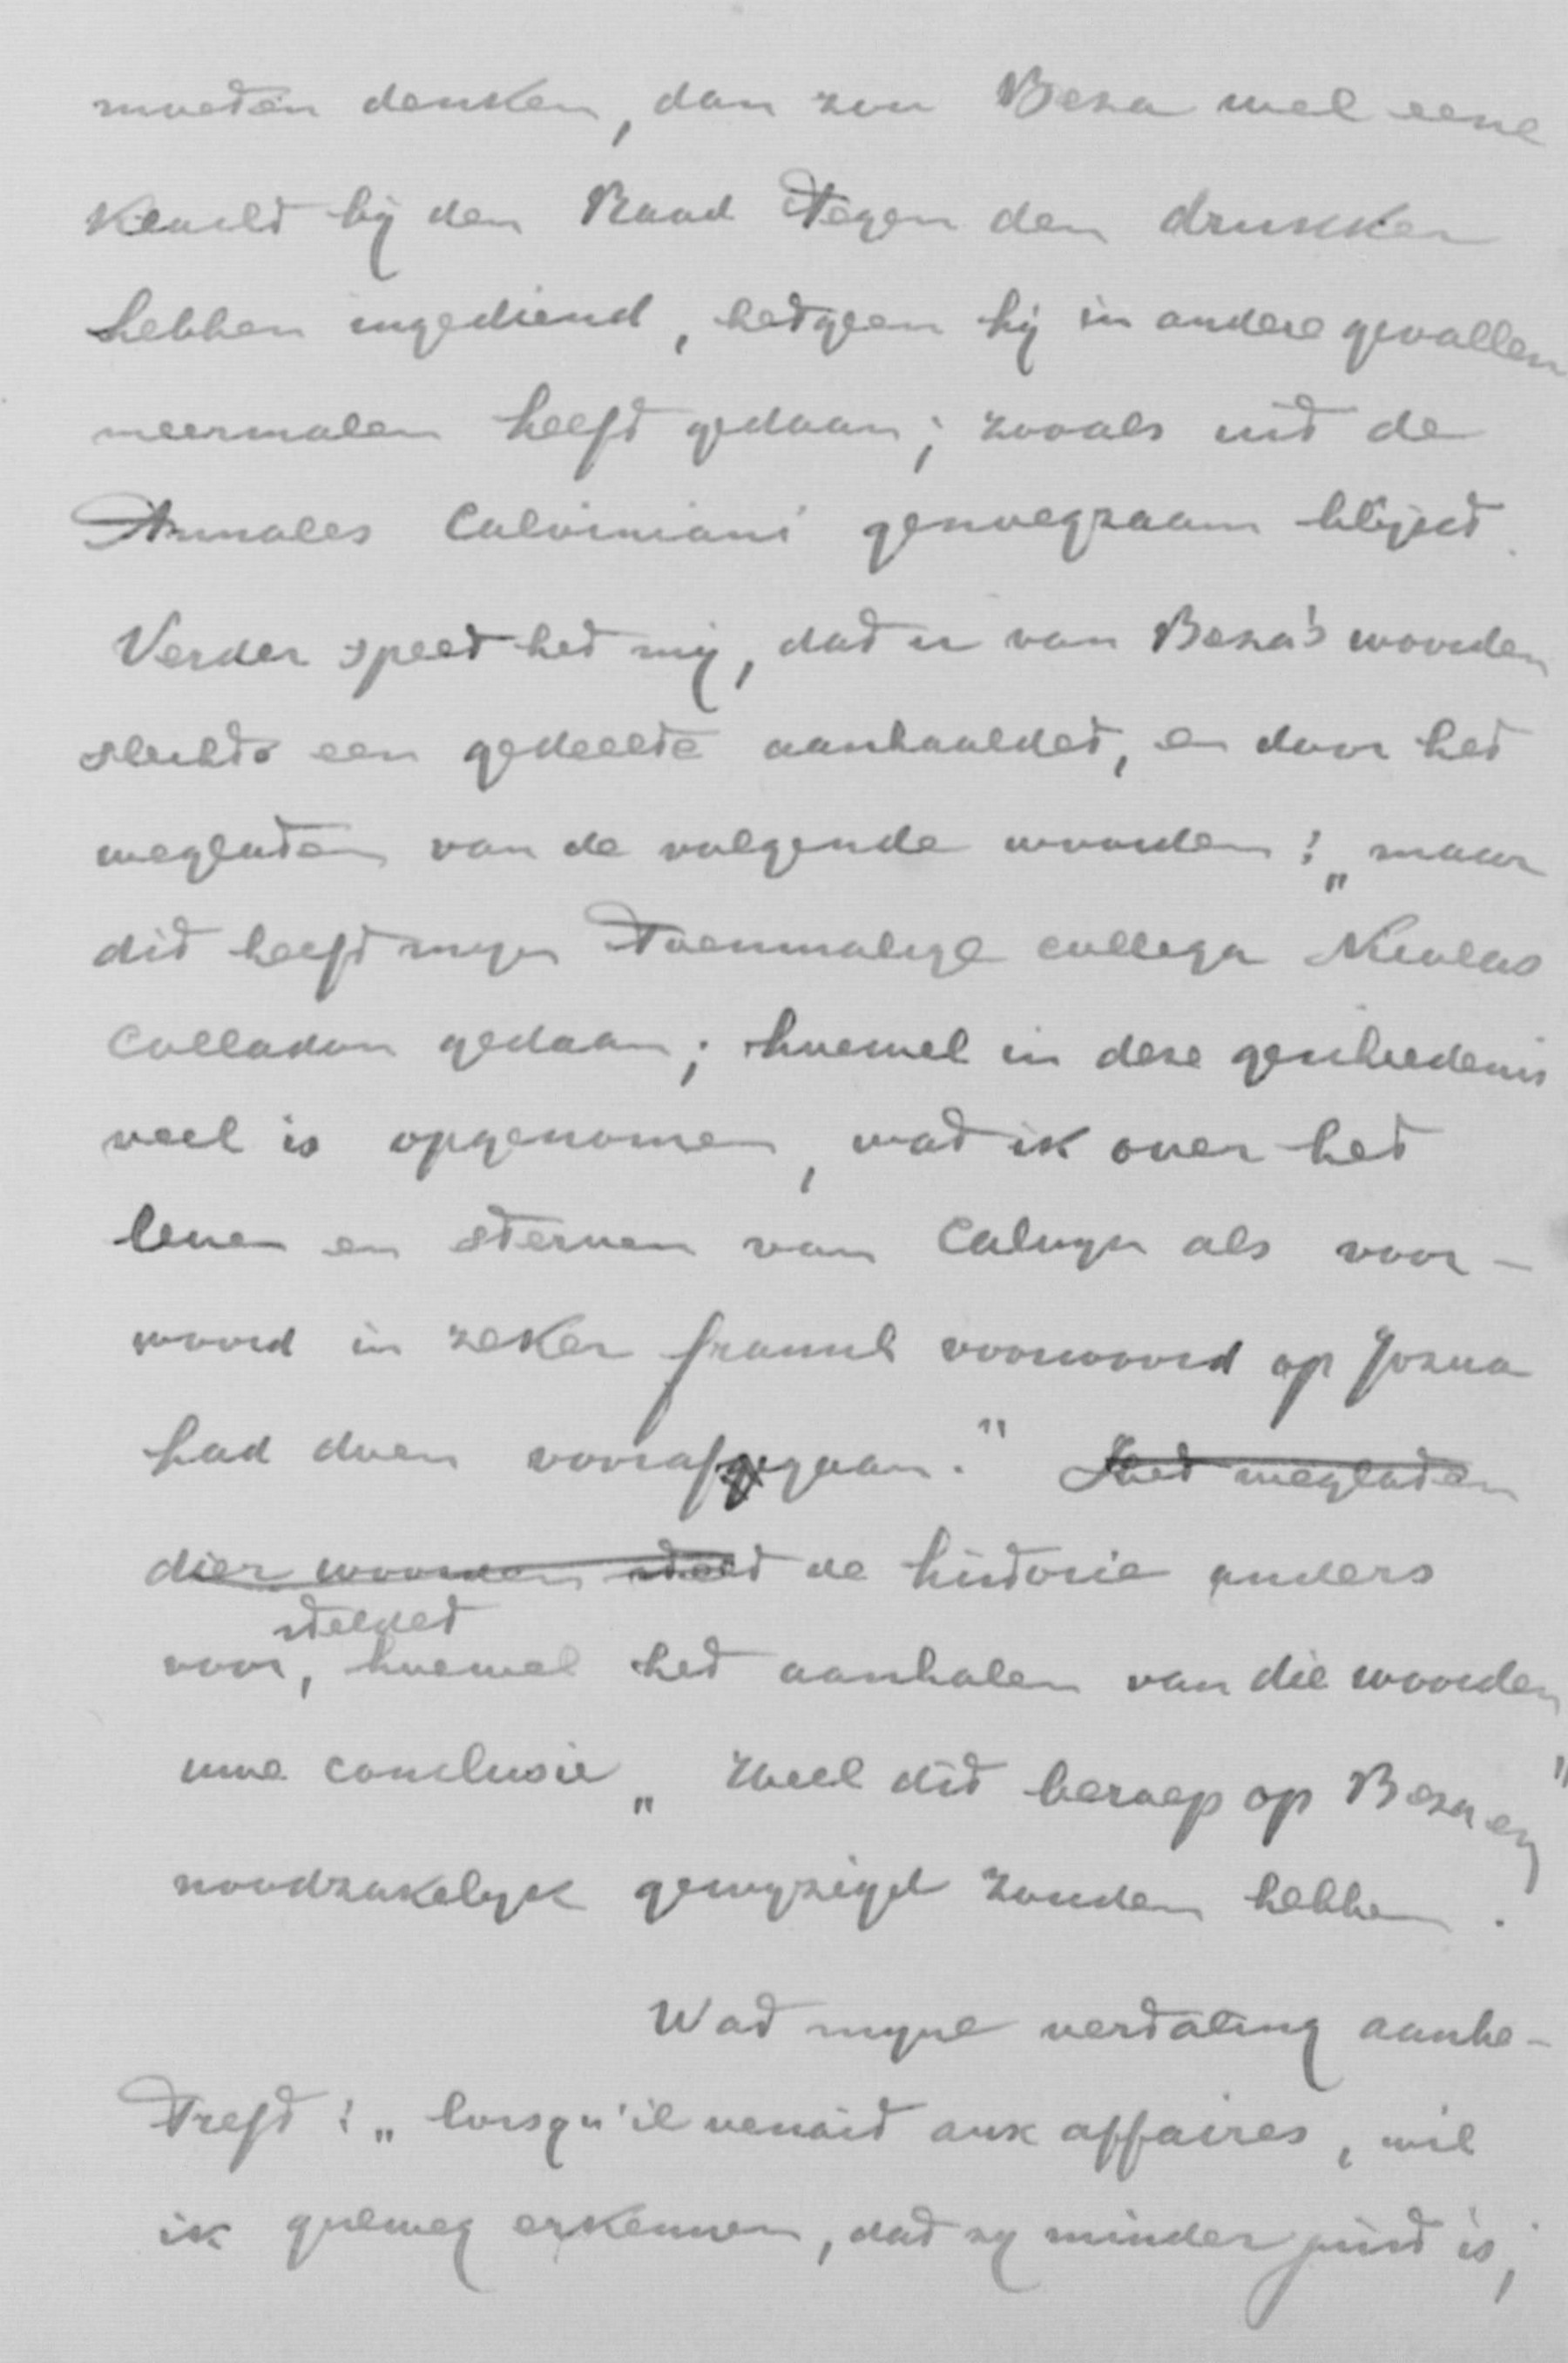 moeten denken, dan zou Beza wel eene
klacht bij den Raad tegen den drukker
hebben ingediend, hetgeen hij in andere gevallen
meermalen heeft gedaan; zooals uit de
Annales Calviniani genoegzaam blijkt.
Verder speet het mij, dat u van Beza's woorden
slechts een gedeelte aanhaaldet, en door het
weglaten van de volgende woorden: „maar
dit heeft mijn toenmalige collega Nicolas
Colladon gedaan; hoewel in deze geschiedenis
veel is opgenomen, wat ik over het
leven en sterven van Calvyn als voor-
woord in zeker fransch voorwoord op Jozua
had doen voorafgegaan." Het weglaten
dier woorden stelt de historie anders
steldet
voor, hoewel het aanhalen van die woorden
uwe conclusie „Zoeel dit beroep op Beza en"
noodzakelyk gewyzigd zouden hebben.
Wat myne vertaling aanbe-
treft: „lorsqu'il venait aux affaires, wil
ik gulweg erkennen, dat zy minder juist is,